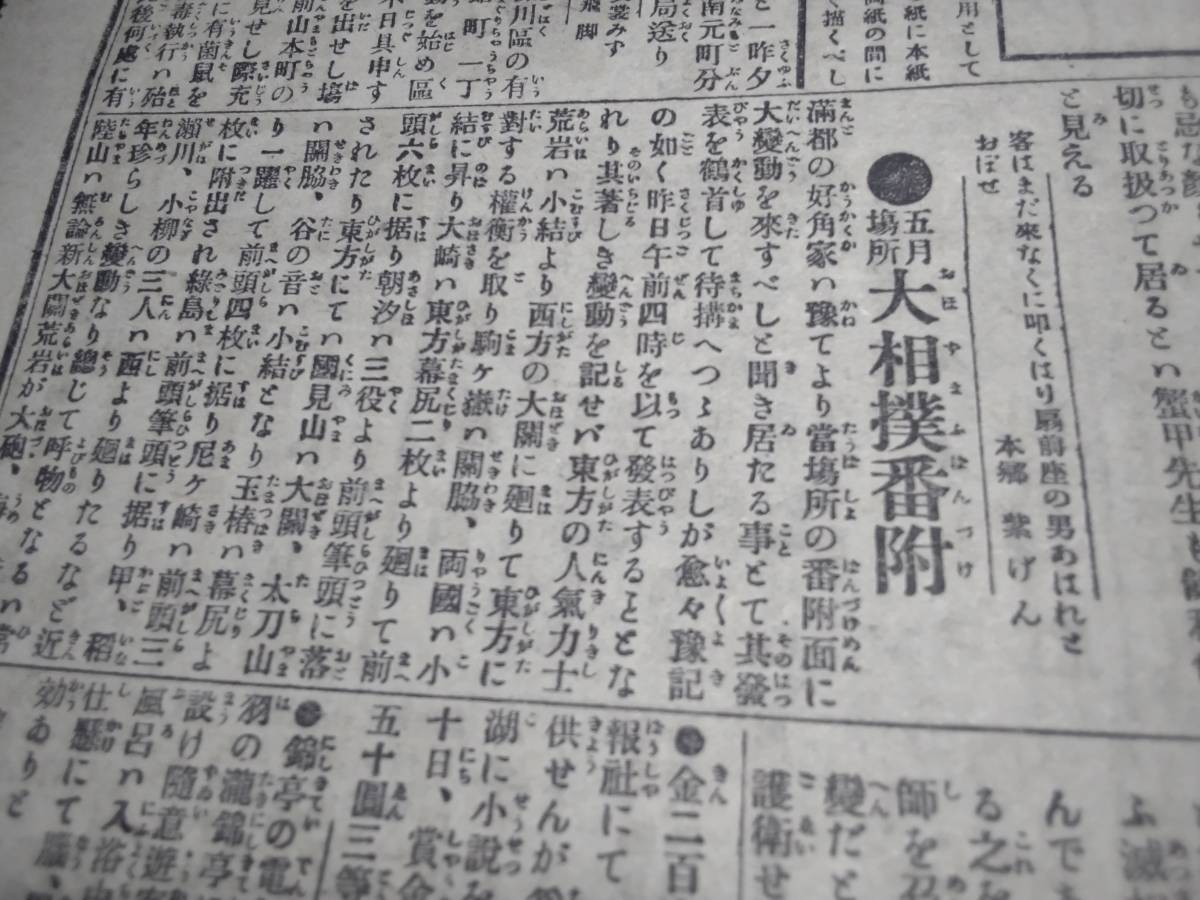 も忌
切に取扱つて居るといふ蟹甲先生も
と見える
客はまだ來なくに叩くはり扇前座の男あはれさ
おぼせ
本郷 紫げん
●五月場所大相撲番附
滿都の好角家ハ豫てより當塲所の番附面に
大變動を來すべしと聞き居たる事とて其發
表を鶴首して待搆へつゝありしが愈々豫記
の如く昨日午前四時を以て發表することとな
れり其著しき變動を記せバ東方の人氣力士
荒岩ハ小結より西方の大關に廻りて東方に
對する權衡を取り駒ヶ嶽ハ關脇、両國ハ小
結に昇り大崎ハ東方幕尻二枚より廻りて前
頭六枚に据り朝汐ハ三役より前頭筆頭に落
されたり東方にてハ國見山ハ大關、太刀山
ハ關脇、谷の音ハ小結となり玉椿ハ幕尻よ
り一躍して前頭四枚に据り尼ヶ崎ハ前頭三
枚に附出され綠島ハ前頭筆頭に据り甲、稻
瀬川、小柳の三人ハ西より廻りたるなど近
年珍らしき變動なり總じて呼物となるハ常
陸山ハ無論新大關荒岩が大砲、
用として
紙に本紙
紙の間に
描くべし
と一昨夕
南元町分
局送り
飛脚
川區の有
町一丁
を始め區
日具申す
を出せし塲
前山本町の
見せし際充
に有菌鼠を
毒執行ハ殆
後何處に有
んでも
る之を
師を召
變だと
護衛せ
●金二百
報社にて
供せんが
湖に小說を
十日、賞金
五十圓三等
●錦亭の電
羽の瀧錦亭
設け隨意遊客
風呂ハ入浴
仕懸にて雁、
効ありと